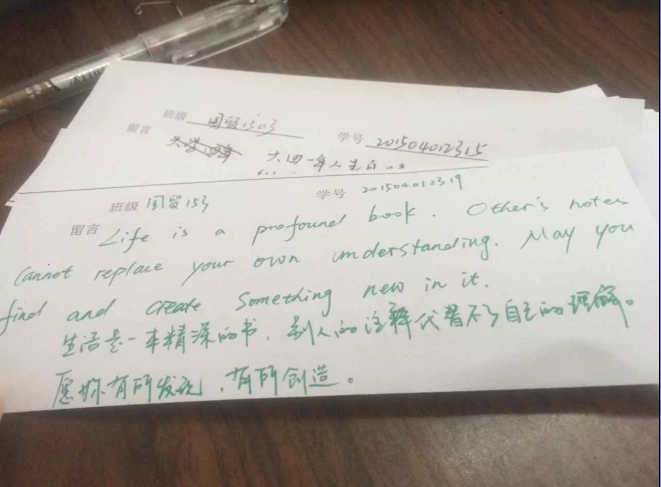 班级 国贸1503
学号 201504012315
留言
大四一年人生有
班级 国贸153
学号 201504012319
留言 Life is a profound book. Other's notes
cannot replace your own understanding. May you
find and create something new in it.
生活是一本精深的书,别人的注释代替不了自己的理解。
愿你有所发现,有所创造。